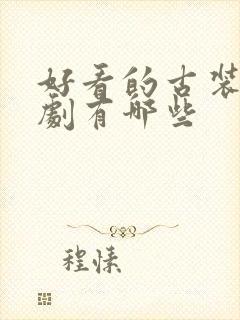 好看的古装
劇有哪些
程愫